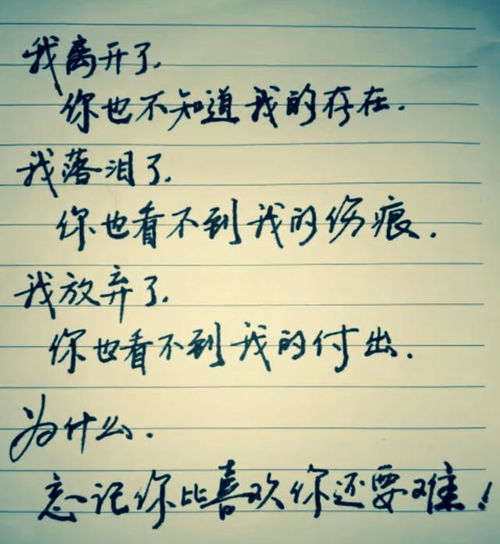 我离开了.
你也不知道我的存在.
我落泪了.
你也看不到我的伤痕.
我放弃了.
你也看不到我的付出.
为什么.
忘记你比喜欢你还要难!